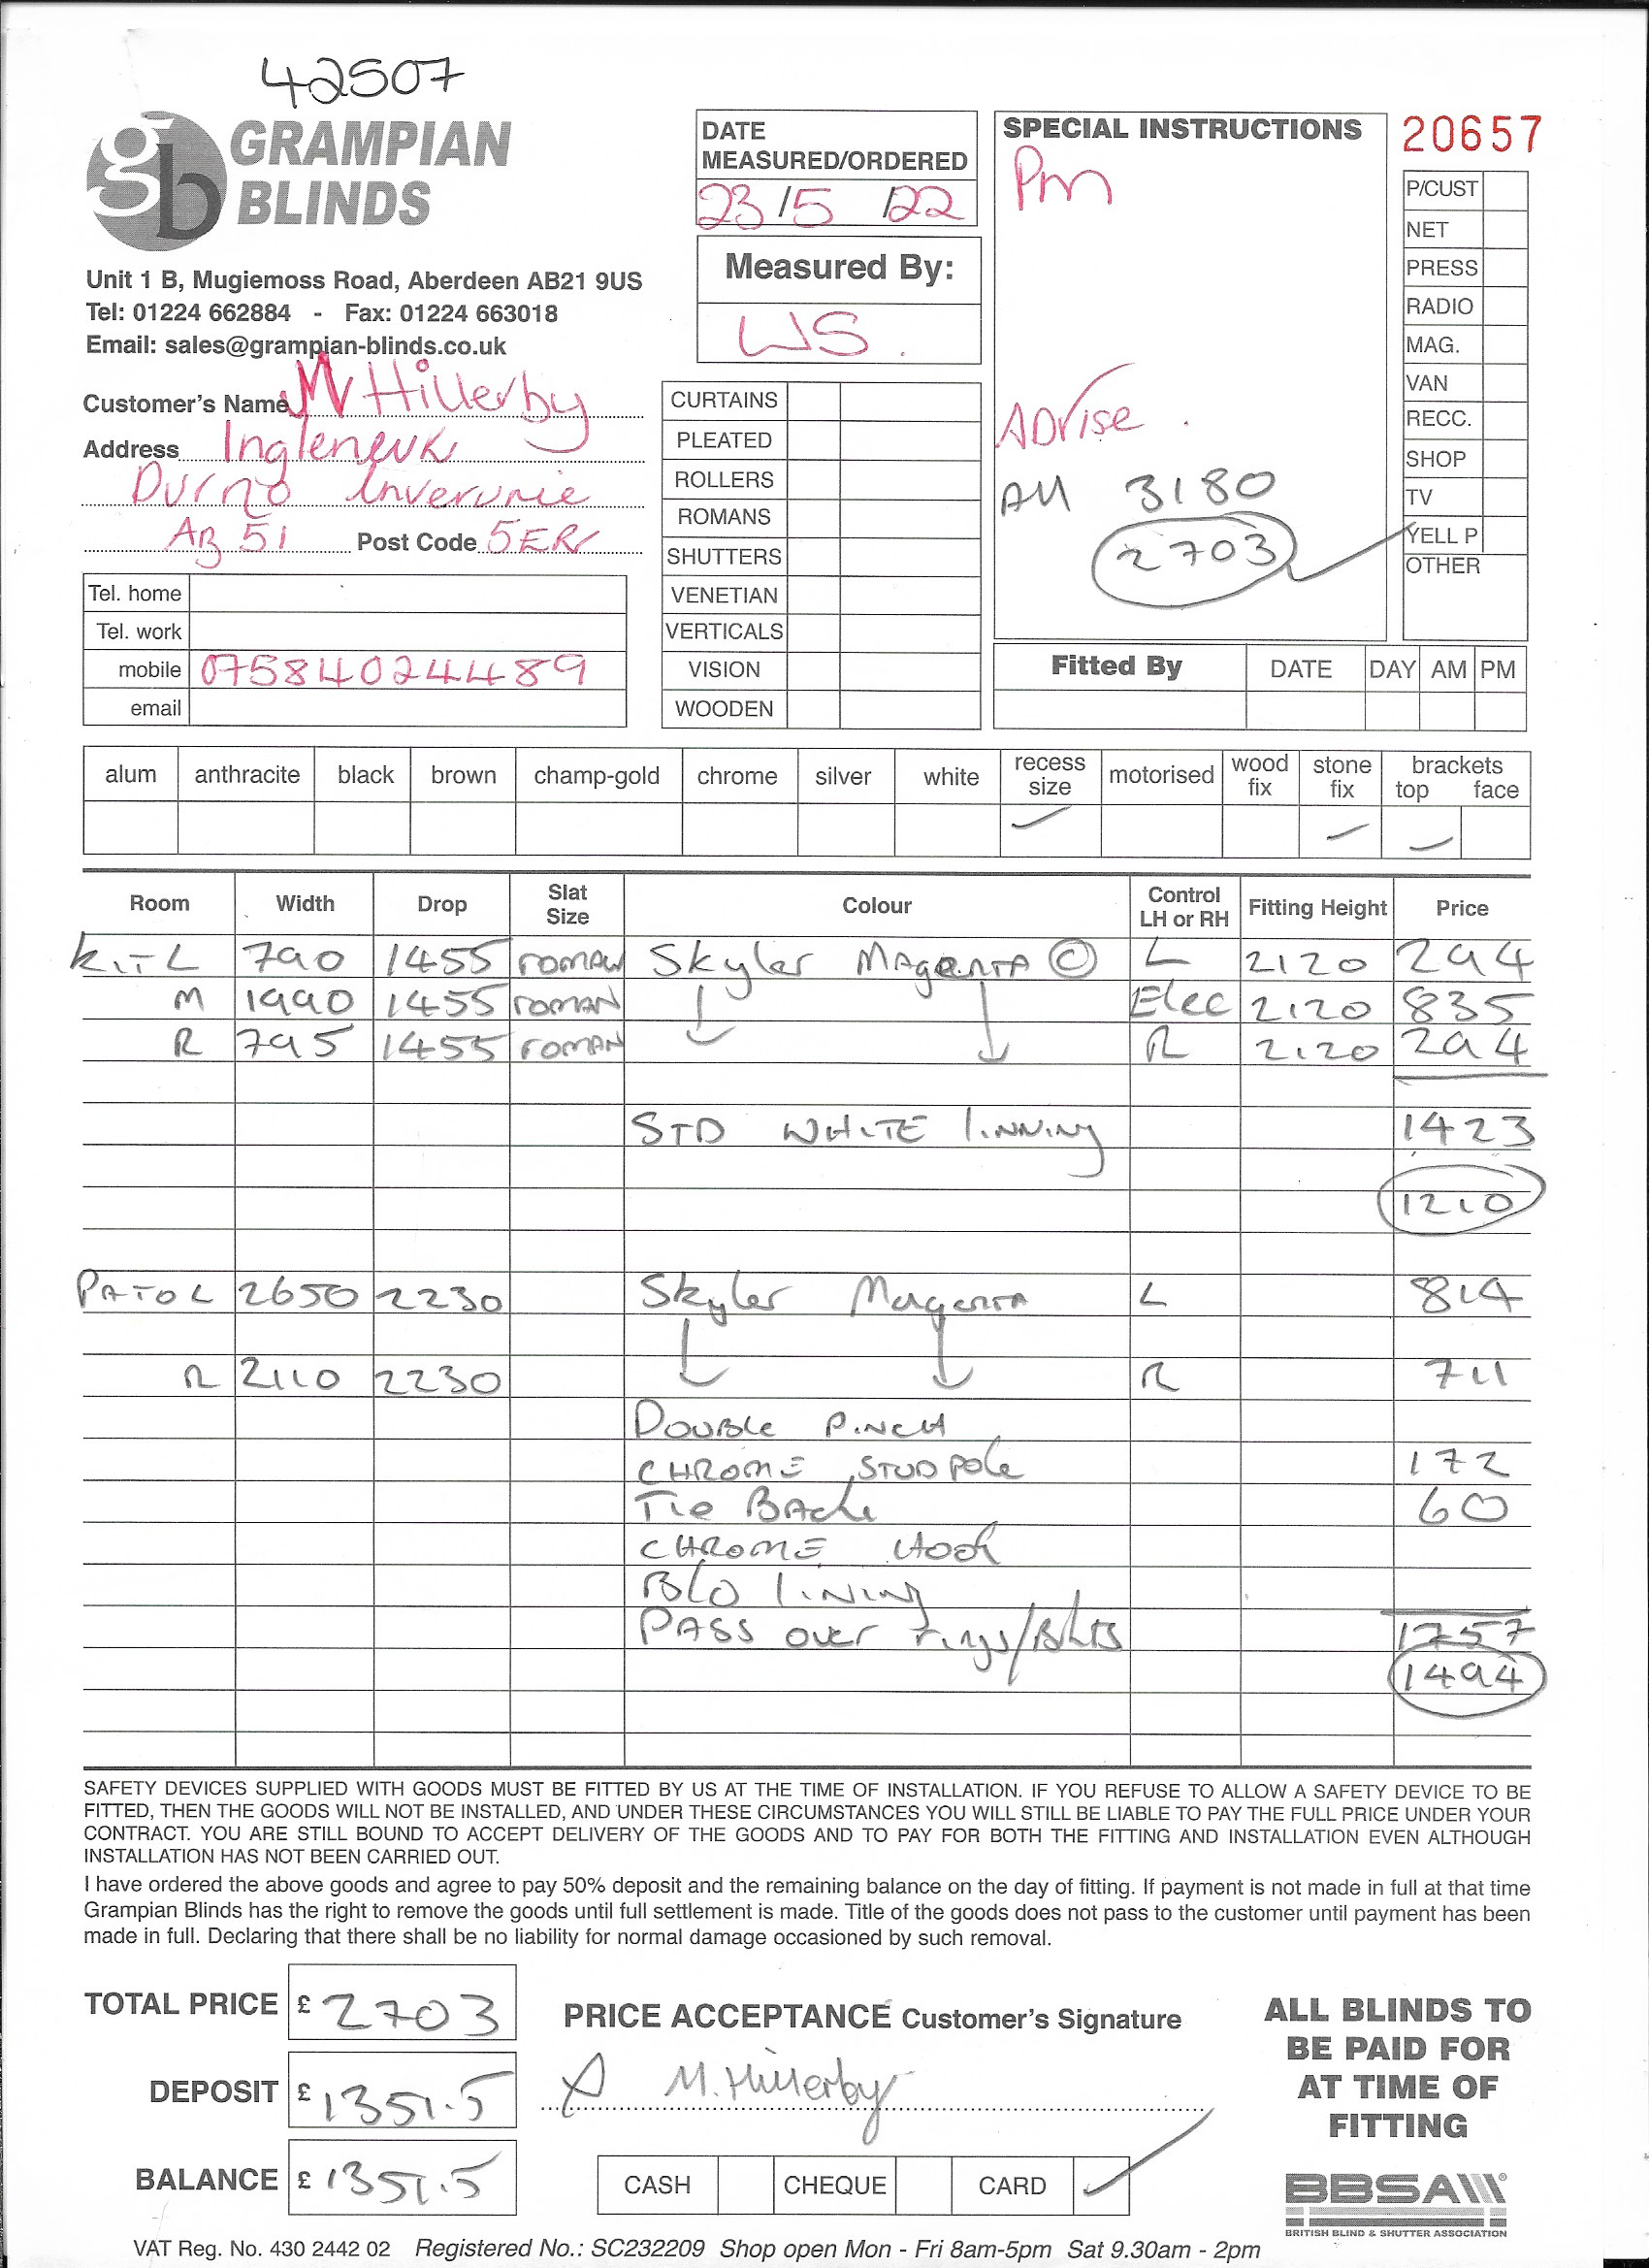 42507
GRAMPIAN
BLINDS
Unit 1 B, Mugiemoss Road, Aberdeen AB21 9US
Tel: 01224 662884 - Fax: 01224 663018
Email: sales@grampian-blinds.co.uk
Customer's Name Mr Hillerby
Address Ingleneuk
Durno Inverurie
AB 51 Post Code 5ER
Tel. home
Tel. work
mobile 07584024489
email
DATE
MEASURED/ORDERED
23/5/22
Measured By:
WS.
CURTAINS
PLEATED
ROLLERS
ROMANS
SHUTTERS
VENETIAN
VERTICALS
VISION
WOODEN
SPECIAL INSTRUCTIONS
Pm
ADVISE.
All 3180
2703
20657
P/CUST
NET
PRESS
RADIO
MAG.
VAN
RECC.
SHOP
TV
YELL P
OTHER
Fitted By DATE DAY AM PM
alum anthracite black brown champ-gold chrome silver white recess size motorised wood fix stone fix brackets top face
Room Width Drop Slat Size Colour Control LH or RH Fitting Height Price
KIT L 790 1455 ROMAN Skyler MAGENTA © L 2120 294
M 1990 1455 ROMAN Elec 2120 835
R 795 1455 ROMAN R 2120 294
STD WHITE linning 1423
1210
PATO L 2650 2230 Skyler Magenta L 814
R 2110 2230 R 711
DOUBLE PINCH
CHROME STUD POLE 172
Tie Back 60
CHROME Hook
B/O lining
PASS over rings/Bkts 1757
1494
SAFETY DEVICES SUPPLIED WITH GOODS MUST BE FITTED BY US AT THE TIME OF INSTALLATION. IF YOU REFUSE TO ALLOW A SAFETY DEVICE TO BE
FITTED, THEN THE GOODS WILL NOT BE INSTALLED, AND UNDER THESE CIRCUMSTANCES YOU WILL STILL BE LIABLE TO PAY THE FULL PRICE UNDER YOUR
CONTRACT. YOU ARE STILL BOUND TO ACCEPT DELIVERY OF THE GOODS AND TO PAY FOR BOTH THE FITTING AND INSTALLATION EVEN ALTHOUGH
INSTALLATION HAS NOT BEEN CARRIED OUT.
I have ordered the above goods and agree to pay 50% deposit and the remaining balance on the day of fitting. If payment is not made in full at that time
Grampian Blinds has the right to remove the goods until full settlement is made. Title of the goods does not pass to the customer until payment has been
made in full. Declaring that there shall be no liability for normal damage occasioned by such removal.
TOTAL PRICE £ 2703
DEPOSIT £ 1351.5
BALANCE £ 1351.5
PRICE ACCEPTANCE Customer's Signature
X M.Hillerby
CASH CHEQUE CARD
ALL BLINDS TO
BE PAID FOR
AT TIME OF
FITTING
BBSA
BRITISH BLIND & SHUTTER ASSOCIATION
VAT Reg. No. 430 2442 02 Registered No.: SC232209 Shop open Mon - Fri 8am-5pm Sat 9.30am - 2pm